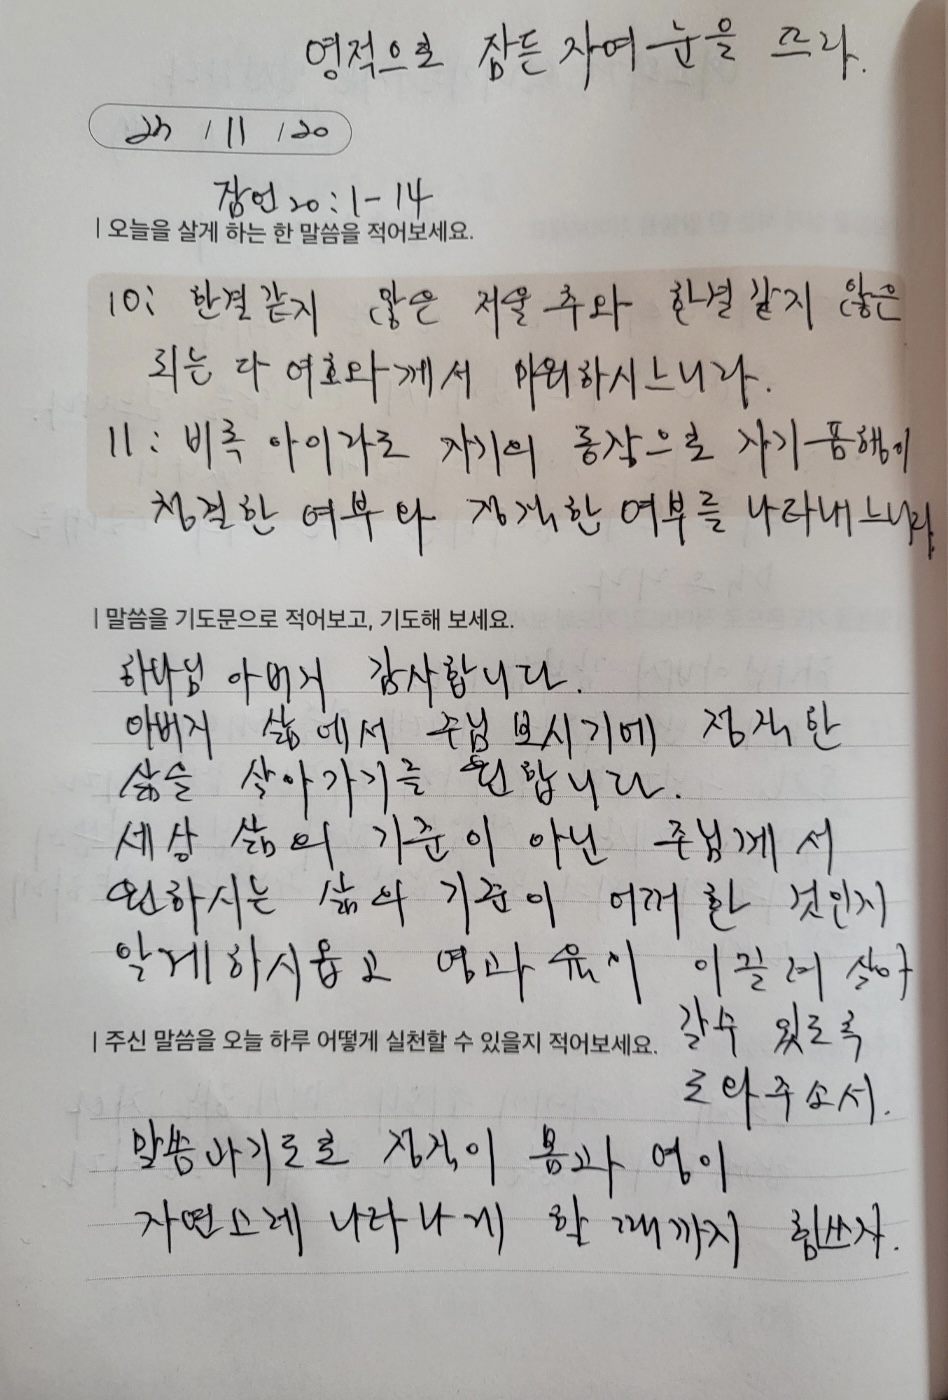 영적으로 잠든 자여 눈을 뜨라.
23 / 11 / 20
잠언 20:1-14
| 오늘을 살게 하는 한 말씀을 적어보세요.
10: 한결같지 않은 저울 추와 한결같지 않은
되는 다 여호와께서 미워하시느니라.
11: 비록 아이라도 자기의 동작으로 자기 품행이
청결한 여부와 정직한 여부를 나타내느니라
| 말씀을 기도문으로 적어보고, 기도해 보세요.
하나님 아버지 감사합니다.
아버지 삶에서 주님 보시기에 정직한
삶을 살아가기를 원합니다.
세상 삶의 기준이 아닌 주님께서
원하시는 삶의 기준이 어떠한 것인지
알게하시옵고 영과 육이 이끌려 살아
갈수 있도록
도와주소서.
| 주신 말씀을 오늘 하루 어떻게 실천할 수 있을지 적어보세요.
말씀과 기도로 정직이 몸과 영이
자연스레 나타나게 할 때까지 힘쓰자.